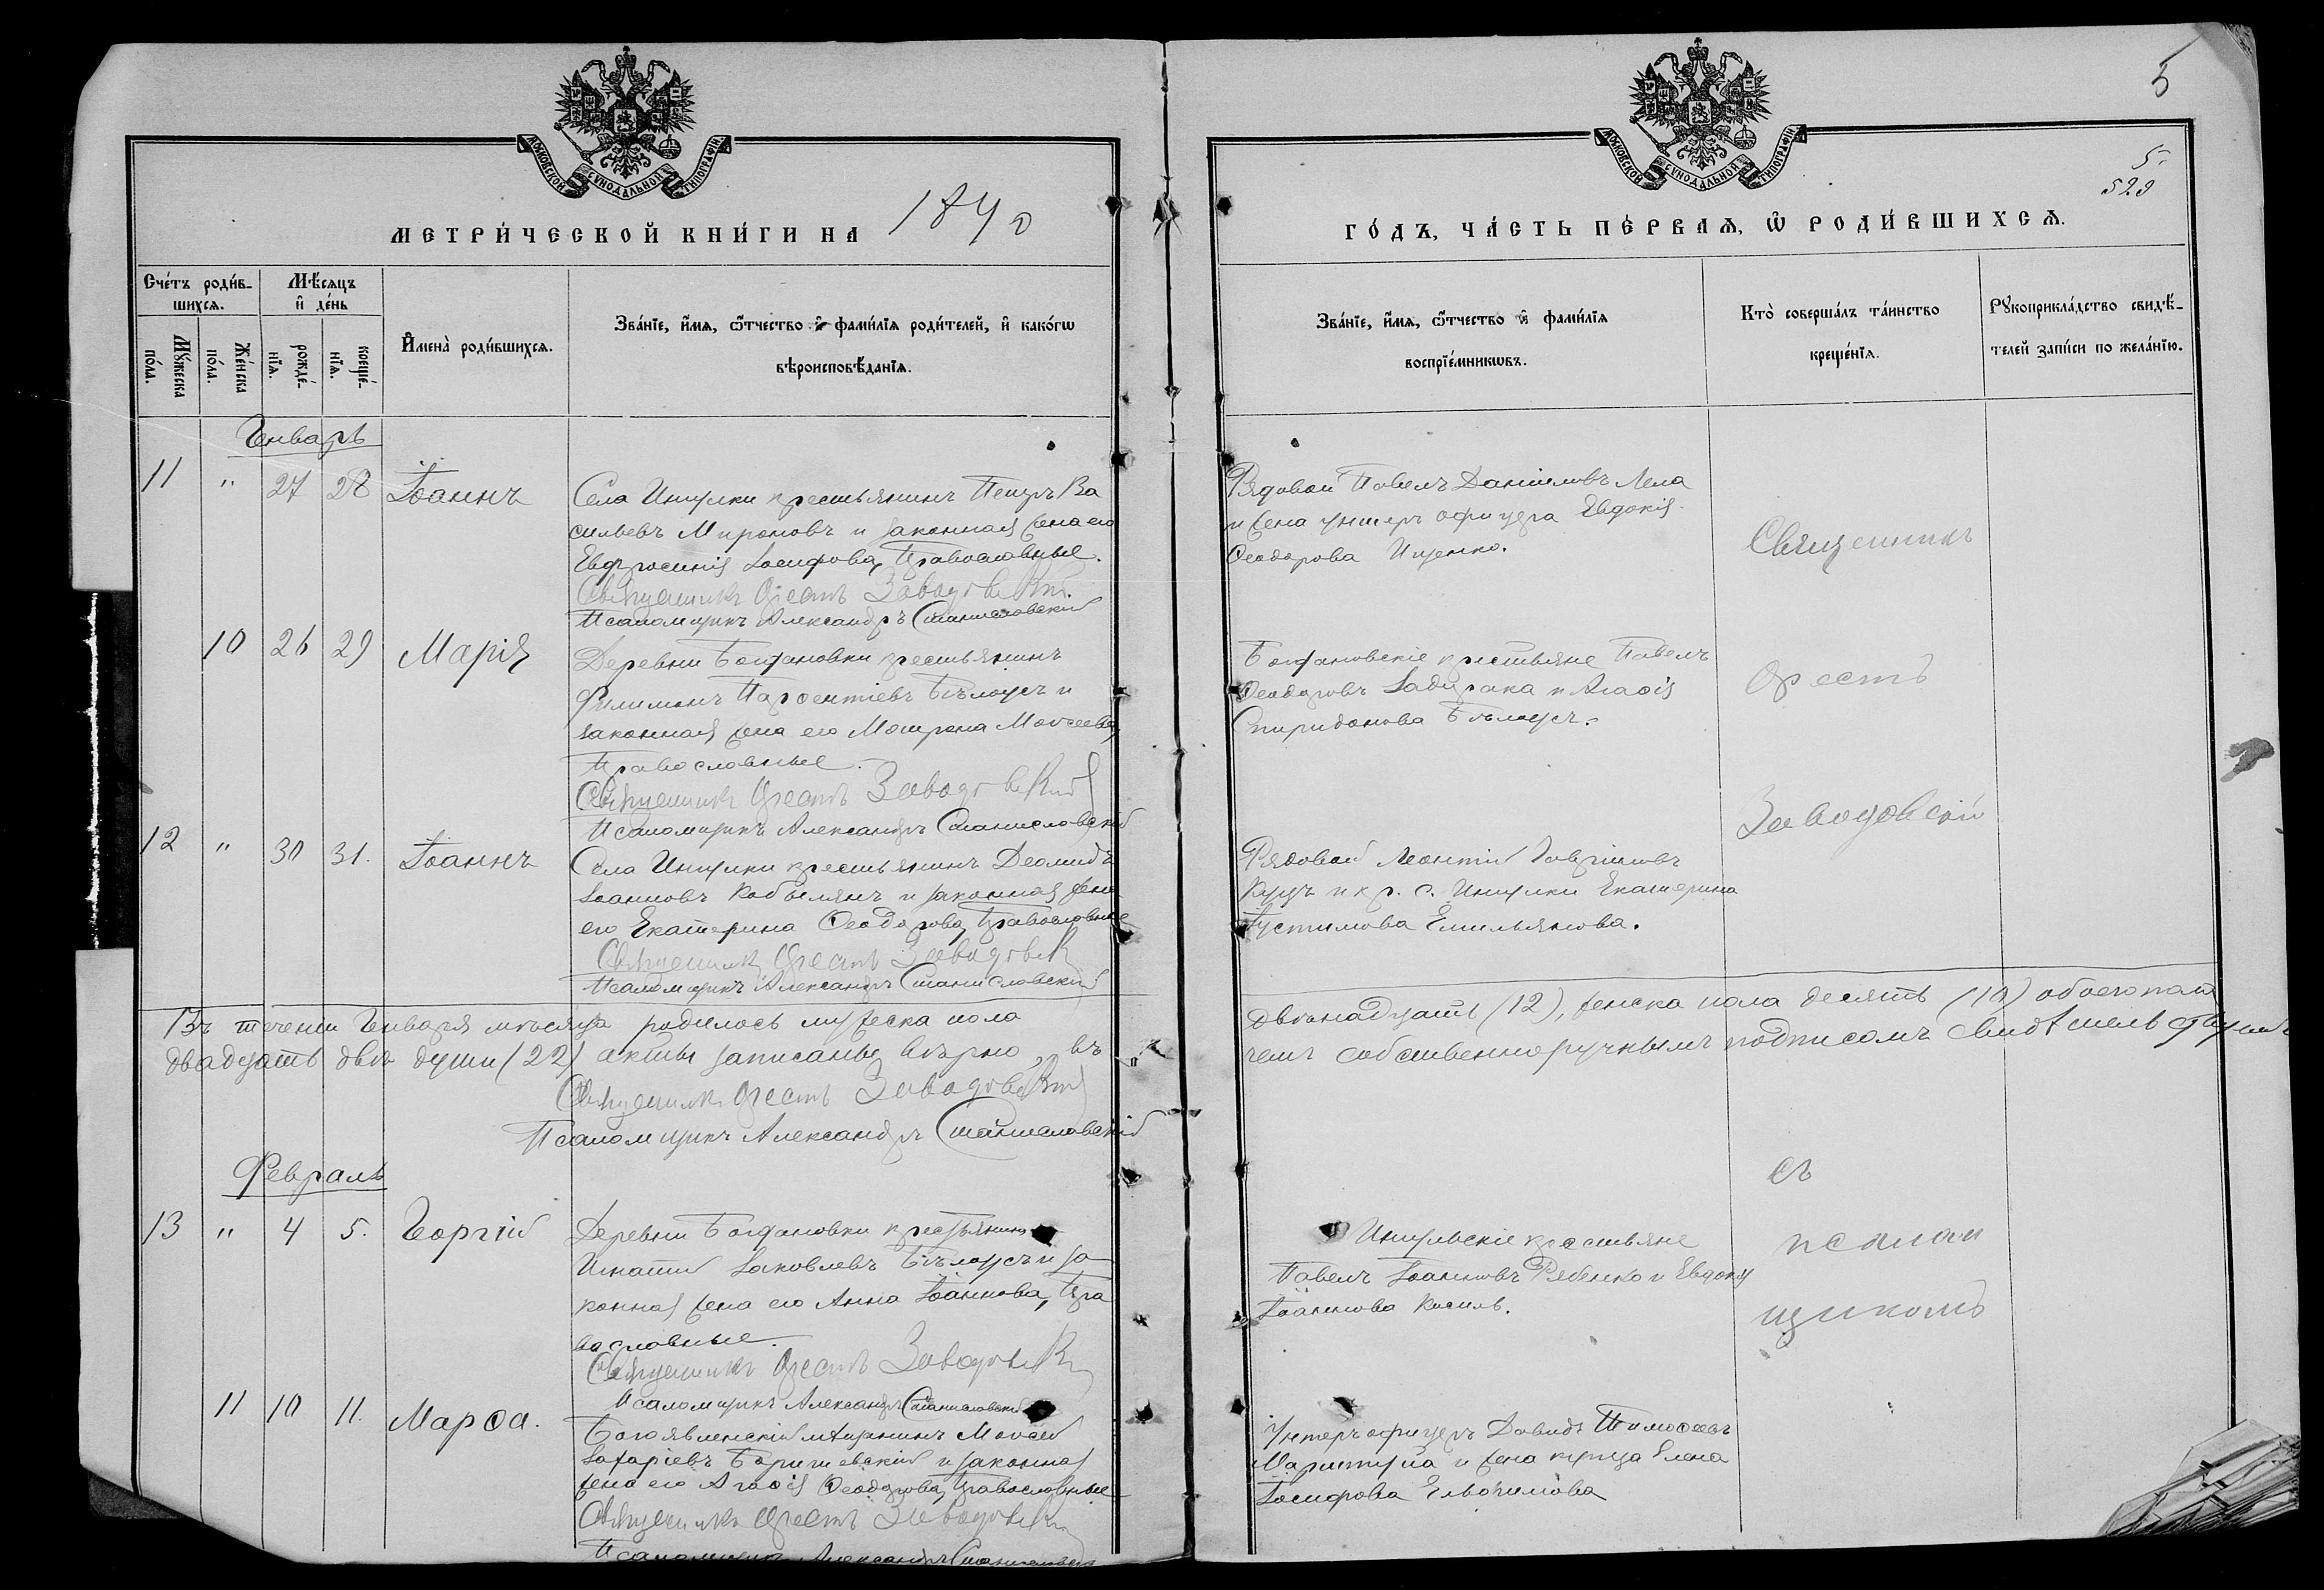 МОСКОВСКОЙ СѴНОДАЛЬНОЙ ТИПОГРАФІИ
МЕТРИ́ЧЕСКОЙ КНИ́ГИ НА 1890
Сче́тъ роди́в-
шихсѧ.
Мѣ́сѧцъ
и҆ де́нь
Мꙋ́жеска
по́ла.
Же́нска
по́ла.
рожде́-
нїѧ.
креще́-
нїѧ.
И҆мена̀ роди́вшихсѧ.
Зва́нїе, и҆́мѧ, ѻ҆́тчество и҆ фами́лїѧ роди́телей, и҆ како́гѡ
вѣроисповѣ́данїѧ.
Генварь
11 " 27 28 Іоаннъ
Села Ингулки крестьянинъ Петръ Ва
сильевъ Мироновъ и законная жена его
Евфросинія Іосифова, Православные.
Священникъ Орестъ Заводовскій
Псаломщикъ Александръ Станиславскій
10 26 29 Марія
Деревни Богдановки крестьянинъ
Филимонъ Парѳентіевъ Бѣлоусъ и
законная жена его Мотрона Моѵсеева,
Православные.
Священникъ Орестъ Заводовскій
Псаломщикъ Александръ Станиславскій
12 " 30 31. Іоаннъ
Села Ингулки крестьянинъ Деомидъ
Іоанновъ Кобылянъ и законная жена
его Екатерина Ѳеодорова, Православные
Священникъ Орестъ Заводовск
Псаломщикъ Александръ Станиславскій
Въ теченіи Генваря мѣсяца родилось мужеска пола
двадцать двѣ души (22) акты записаны вѣрно, въ
Священникъ Орестъ Заводовскій
Псаломщикъ Александръ Станиславскій
Февраль
13 " 4 5. Георгій
Деревни Богдановки крестьянинъ
Игнатій Іаковлевъ Бѣлоусъ и за
конная жена его Анна Іоаннова, Пра
вославные.
Священникъ Орестъ Заводовск
Псаломщикъ Александръ Станиславскій
11 10 11. Марѳа.
Богоявленскій мѣщанинъ Моѵсей
Захаріевъ и законная
жена его Агаѳія Ѳеодорова, Православные
Священникъ Орестъ Заводовск
Псаломщикъ Александръ Станиславск
5
МОСКОВСКОЙ СѴНОДАЛЬНОЙ ТИПОГРАФІИ
5.
529
ГО́ДЪ, ЧА́СТЬ ПЕ́РВАѦ, Ѡ҆ РОДИ́ВШИХСѦ.
Зва́нїе, и҆́мѧ, ѻ҆́тчество и҆ фами́лїѧ
воспрїе́мникѡвъ.
Кто̀ соверша́лъ та́инство
креще́нїѧ.
Рꙋкоприкла́дство свидѣ́-
телей за́писи по жела́нїю.
Рядовой Павелъ Даніиловъ Лела
и жена унтеръ офицера Евдокія
Ѳеодорова Ищенко.
Священникъ
Богдановскіе крестьяне Павелъ
Ѳеодоровъ и Агаѳія
Спиридонова Бѣлоусъ.
Орестъ
Заводовскій
Рядовой Леонтій Гавріиловъ
и кр. с. Ингулки Екатерина
Устимова Емельянова.
двѣнадцать (12), женска пола десять (10) обоего пола
чемъ собственноручнымъ подписомъ свидѣтельствуемъ
съ
Ингульскіе крестьяне
Павелъ Іоанновъ Рябенко и Евдокія
Іоаннова
псалом
щикомъ
Унтеръ офицеръ Давидъ Тимоѳеевъ
и жена купца Елена
Іосифова